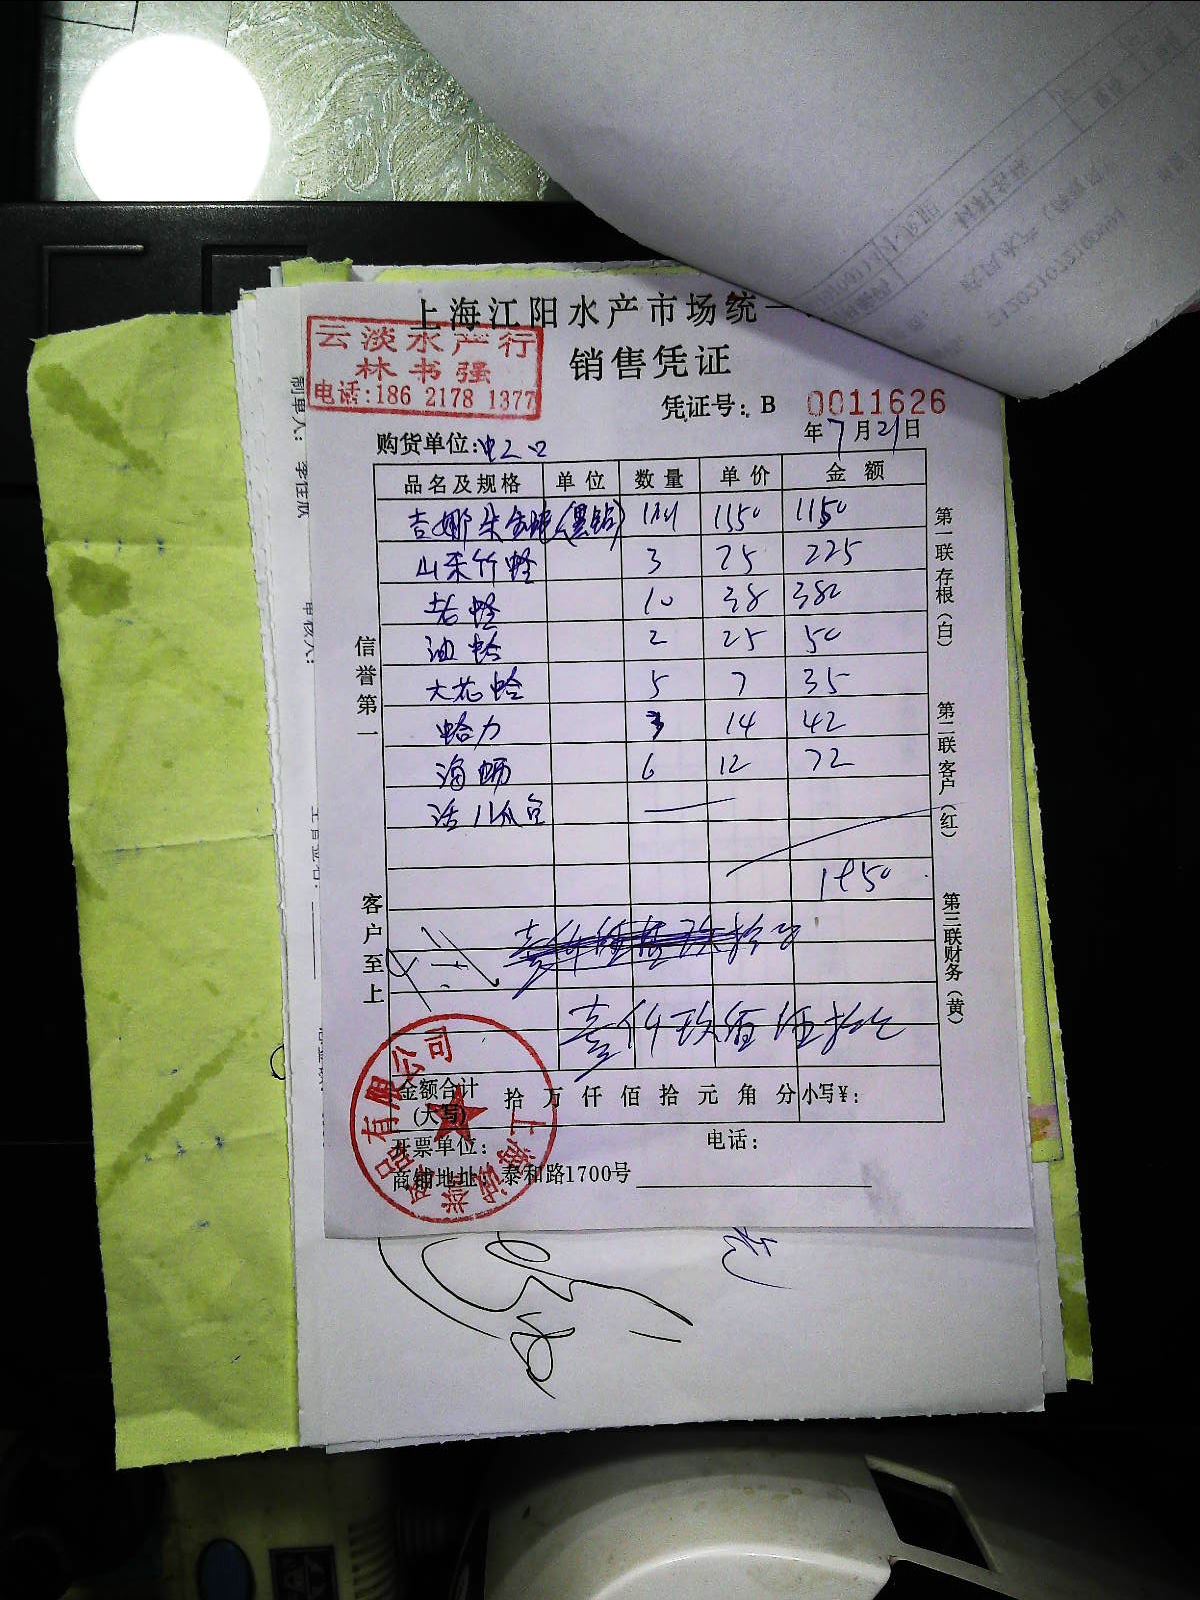 上海江阳水产市场统一
销售凭证
云淡水产行
林书强
电话:186 2178 1377
凭证号: B 0011626
年7月21日
购货单位:
品名及规格 单位 数量 单价 金额
吉娜朵生蚝(黑钻) 1150 1150
山东竹蛏 3 75 225
老蛏 10 38 380
油蛤 2 25 50
大花蛤 5 7 35
蛤力 3 14 42
海蛎 6 12 72
1950
壹仟玖佰伍拾元
金额合计(大写) 拾 万 仟 佰 拾 元 角 分 小写¥:
开票单位: 电话:
商铺地址: 泰和路1700号
信誉第一
客户至上
第一联存根(白)
第二联客户(红)
第三联财务(黄)
有限公司
制单人:
审核人: